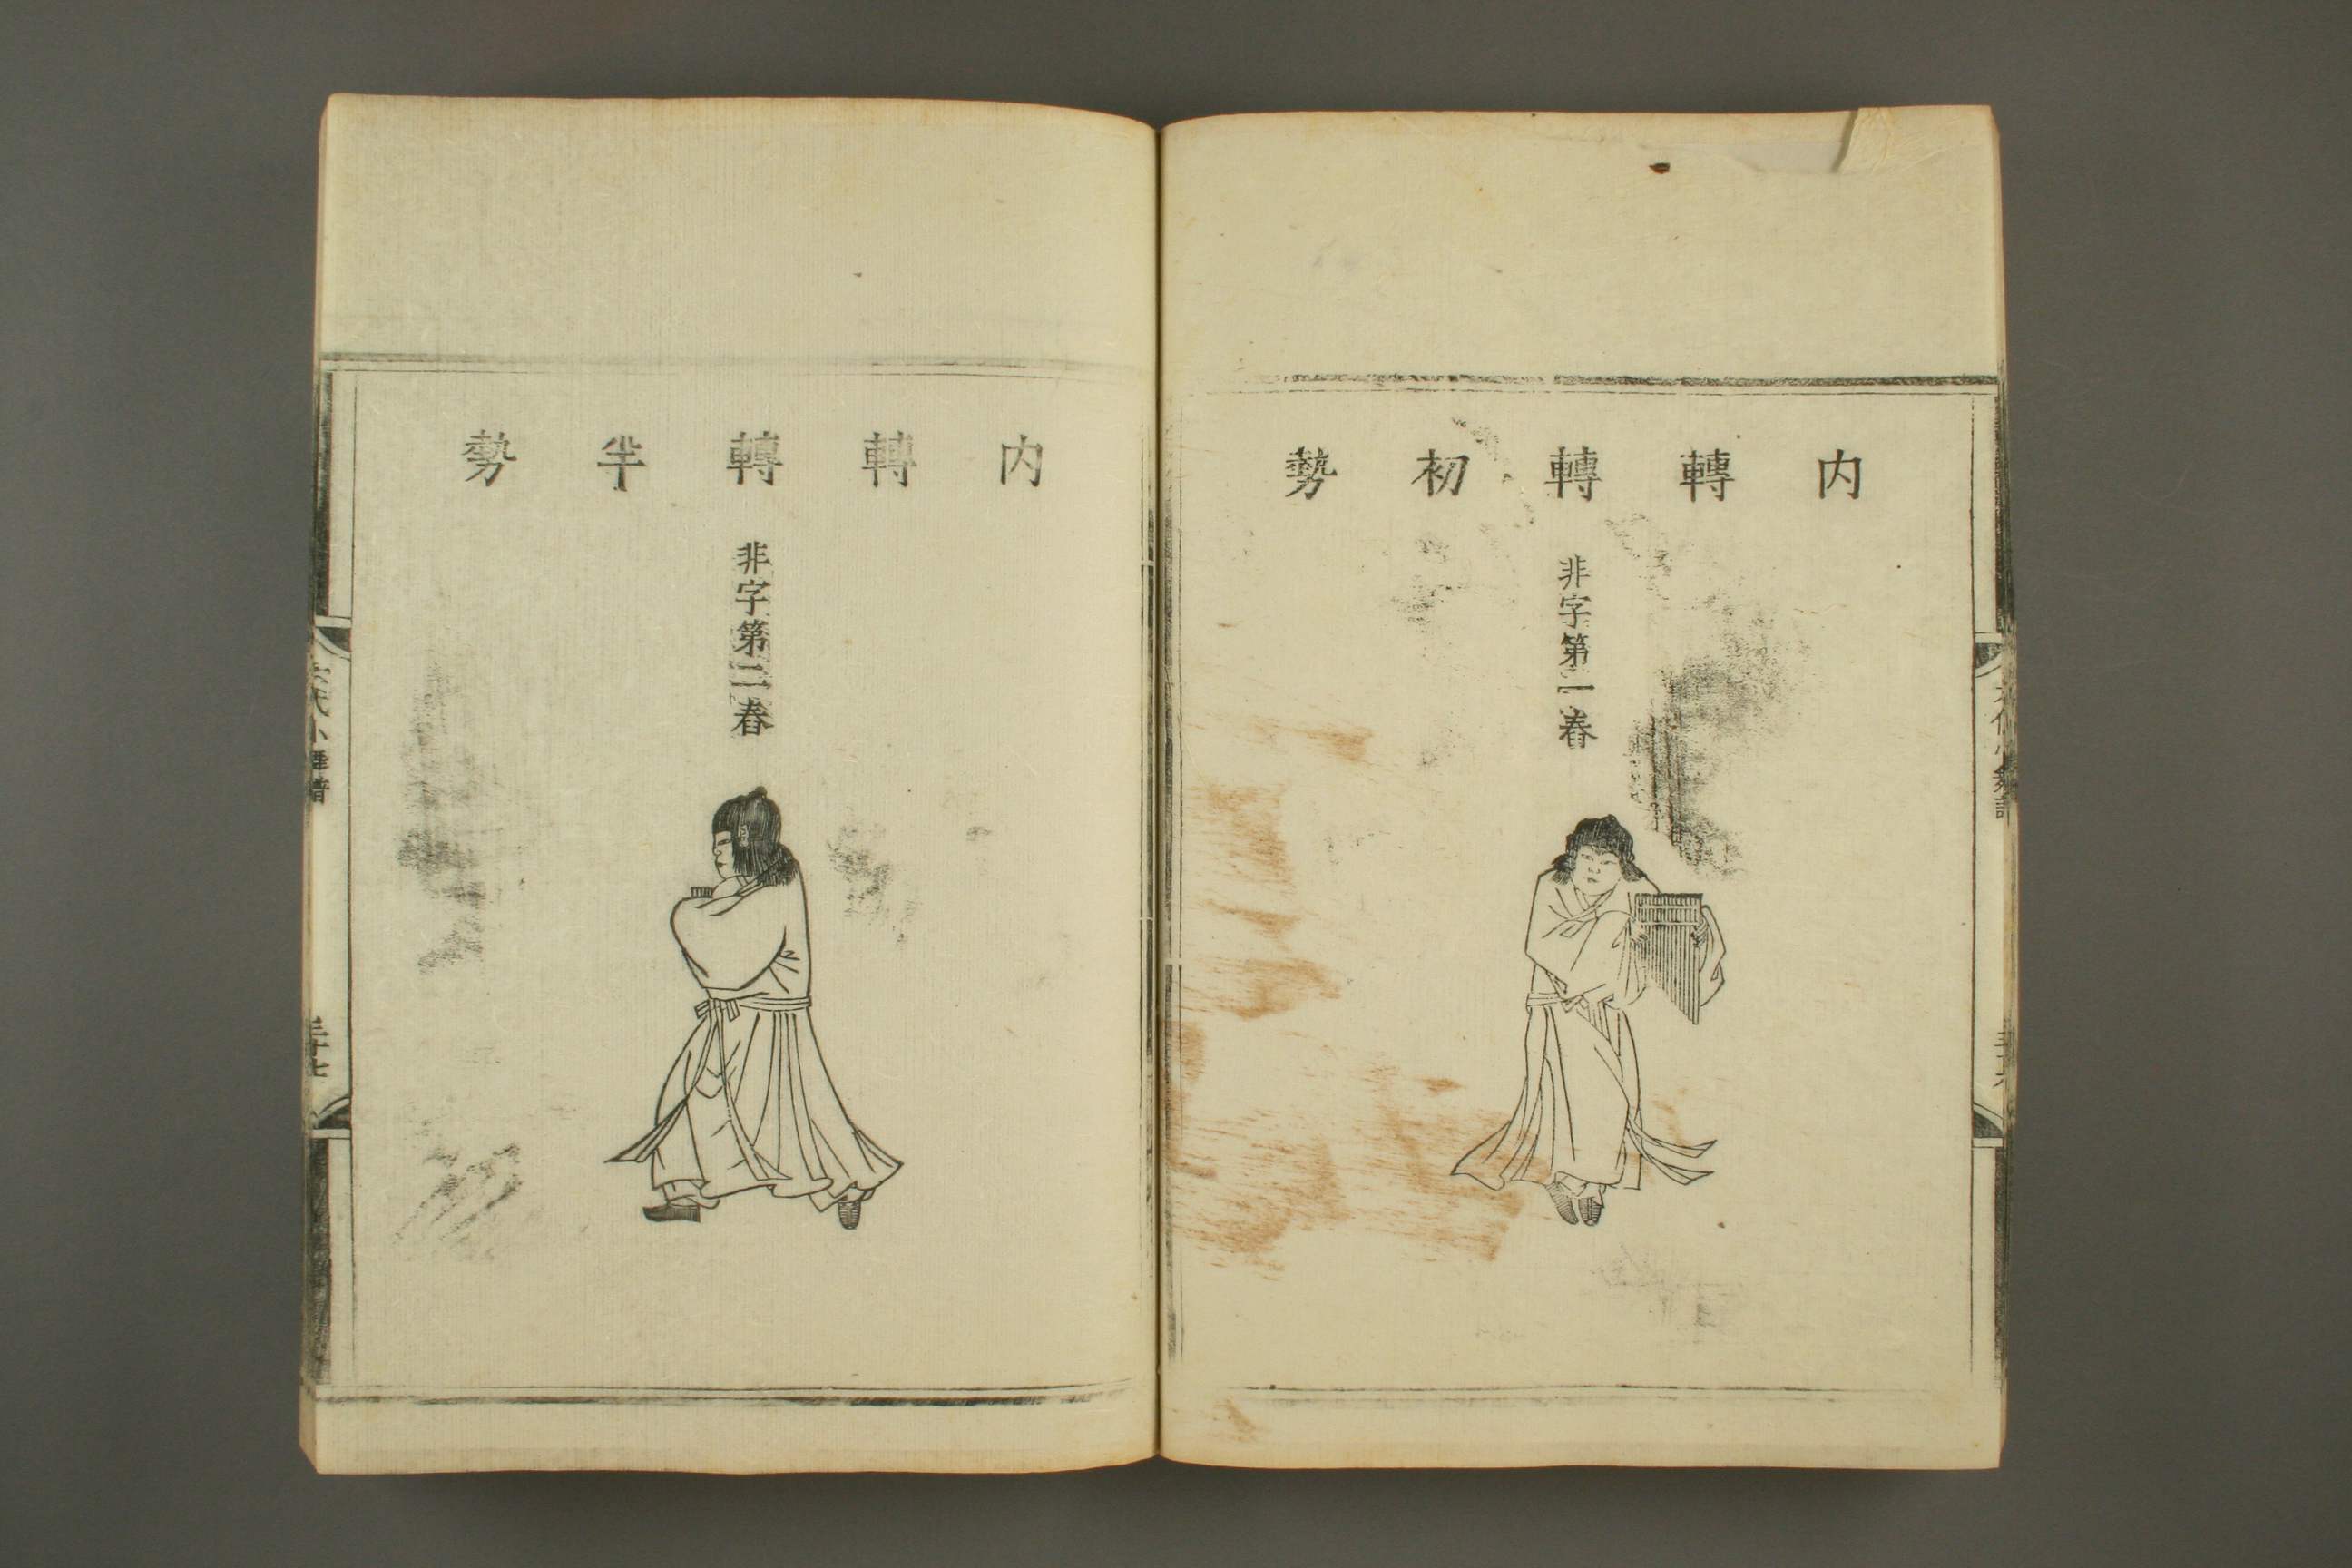 内轉轉初勢
非字第一舂
内轉轉半勢
非字第二舂